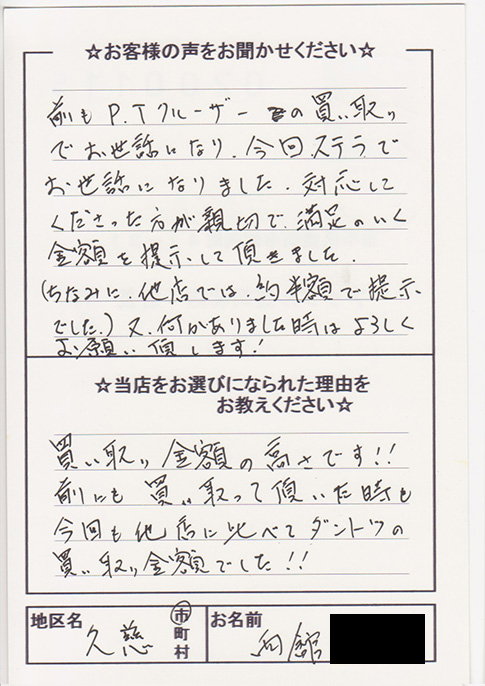 ☆お客様の声をお聞かせください☆
前もP.Tクルーザーの買い取り
でお世話になり、今回、ステラで
お世話になりました。対応して
くださった方が親切で、満足のいく
金額を提示して頂きました。
(ちなみに、他店では、約半額で提示
でした。)又、何かありました時はよろしく
お願い頂します!
☆当店をお選びになられた理由を
お教えください☆
買い取り金額の高さです!!
前にも買い取って頂いた時も
今回も他店に比べてダントツの
買い取り金額でした!!
地区名 久慈 市町村 お名前 向舘